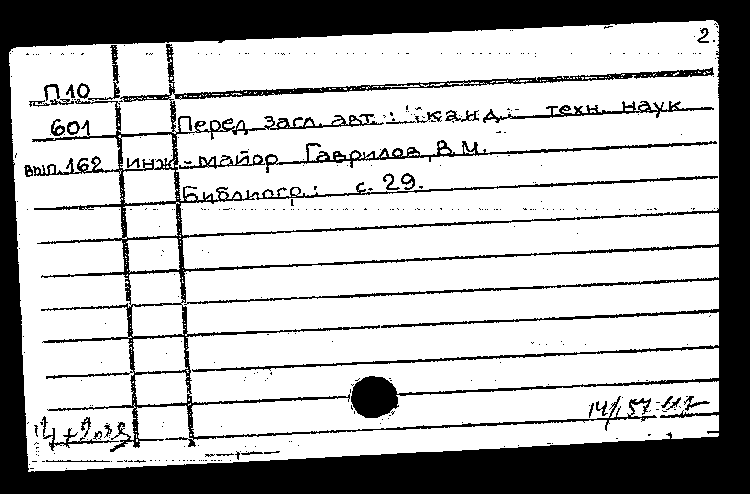 2
П10
601 Перед загл. авт.: канд. техн. наук
вып. 162 инж.-майор Гаврилов, В.М.
Библиогр.: с. 29.